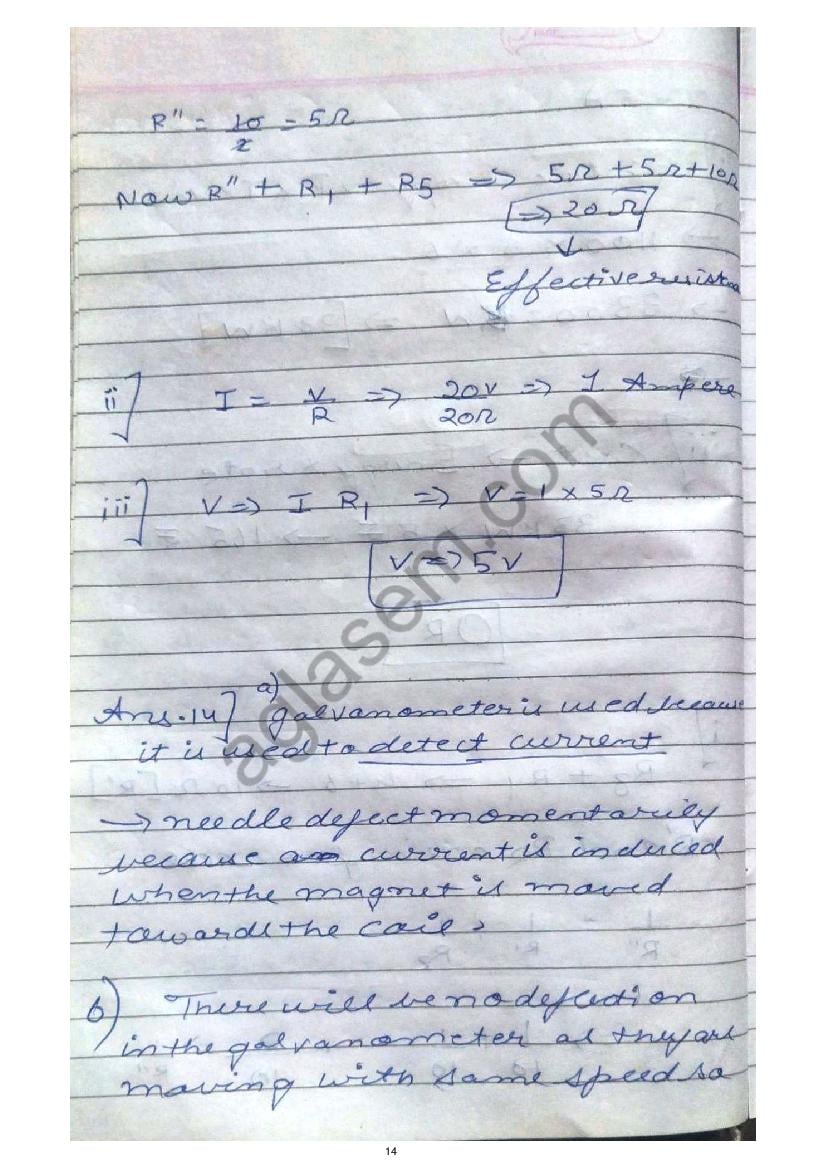 R'' = 10/2 = 5Ω
Now R'' + R1 + R5 => 5Ω + 5Ω + 10Ω
=> 20Ω
↓
Effective resista
ii] I = V/R => 20V/20Ω => 1 Ampere
iii] V => I R1 => V = 1 × 5Ω
V => 5V
Ans.14] a) galvanometer is used because
it is used to detect current
→ needle defect momentarily
because a current is induced
when the magnet is moved
towards the coil.
b) There will be no deflection
in the galvanometer as they are
moving with same speed so
aglasem.com
14